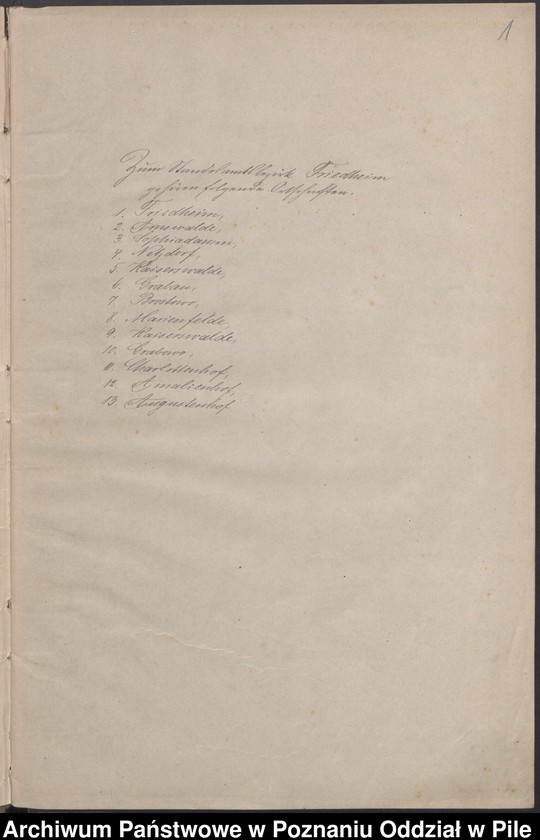 1
Zum Standesamtsbezirk Friedheim
gehören folgende Ortschaften.
1. Friedheim,
2. Arnswalde,
3. Sophiadamm,
4. Netzdorf,
5. Kaiserswalde,
6. Grabau,
7. Brostowo,
8. Marienfelde,
9. Kaiserswalde,
10. Grabowo,
11. Charlottenhof,
12. Amalienhof,
13. Augustenhof
Archiwum Państwowe w Poznaniu Oddział w Pile